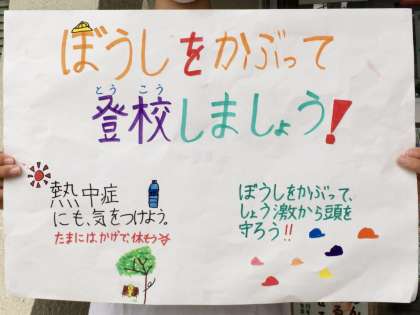 ぼうしをかぶって
とうこう
登校しましょう!
熱中症
にも、気をつけよう。
たまには、かげで、休もう
ぼうしをかぶって、
しょう激から頭を
守ろう!!